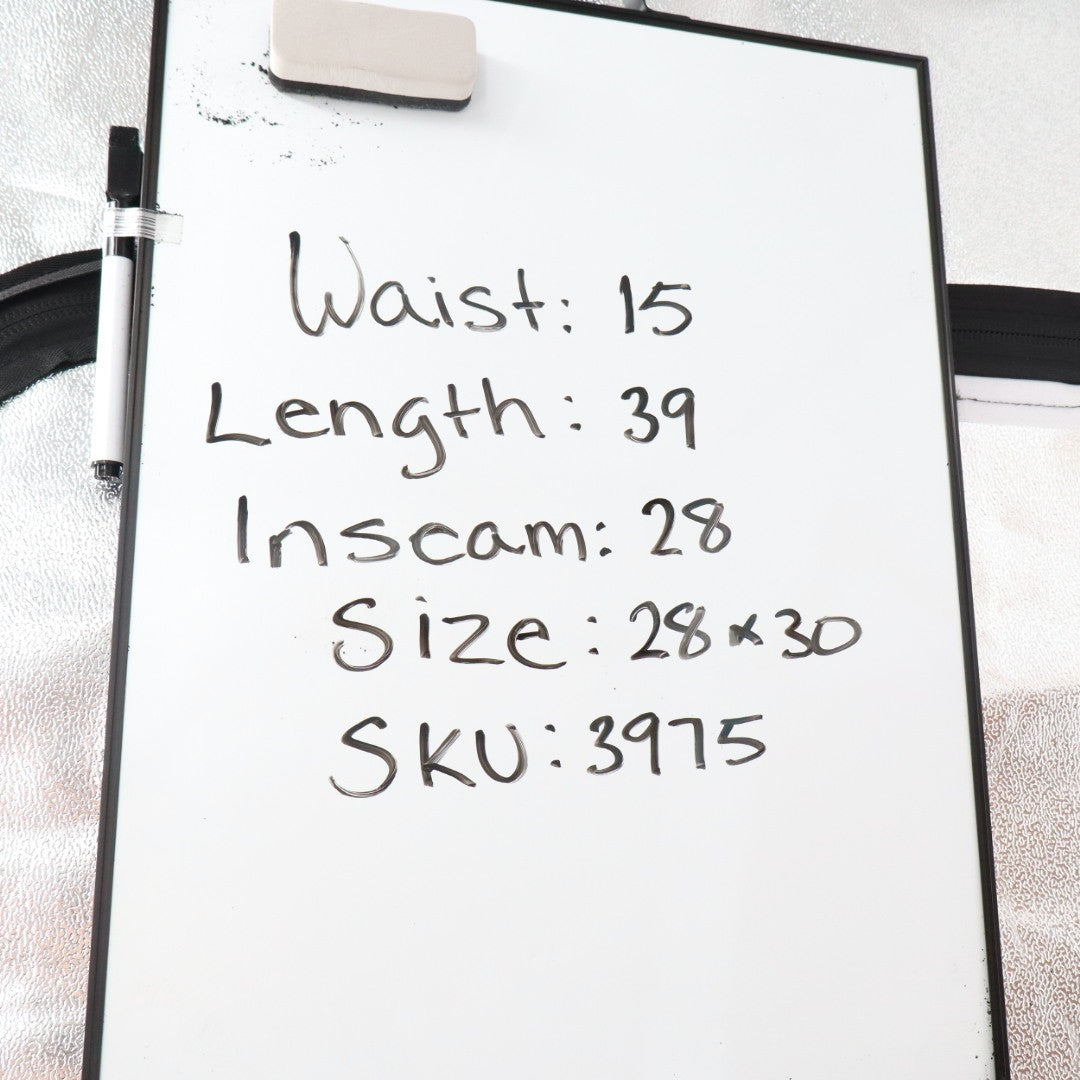 Waist: 15
Length: 39
Inseam: 28
Size: 28x30
SKU: 3975